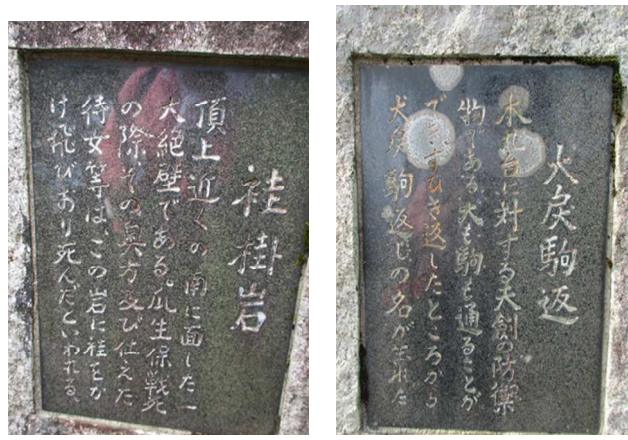 袿掛岩
頂上近くの南に面した一
大絶壁である。瓜生保戦死
の際その奥方及び仕えた
待女等は、この岩に袿をか
けて飛びおり死んだといわれる。
犬戻駒返
本丸台に対する天創の防禦
物である、犬も駒も通ることが
できずひき返したところから
犬戻駒返しの名が生れた